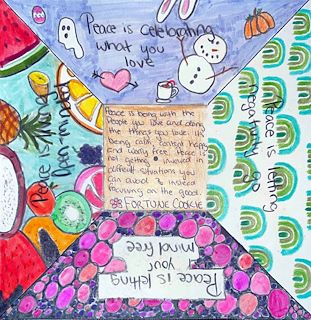 Peace is celebrating
what you
love
Peace is being with the
People you love and doing
the things you love. Its
being calm, content, happy
and worry free. Peace is
not getting involved in
different situations you
can avoid & instead
focusing on the good.
FORTUNE COOKIE
Peace is being
Open-minded
Peace is letting
negativity go
Peace is letting
your
mind free